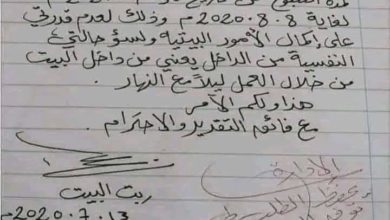 لغاية 2020.8.8م وذلك لعدم قدرتي
على إكمال الأمور البيتية ولسؤ حالتي
النفسية من الداخل يعني من داخل البيت
من خلال العمل ليلاً مع النهار
هذا ولكم الأمر
مع فائق التقدير والاحترام.
ربت البيت
2020.7.13م
الإدارة